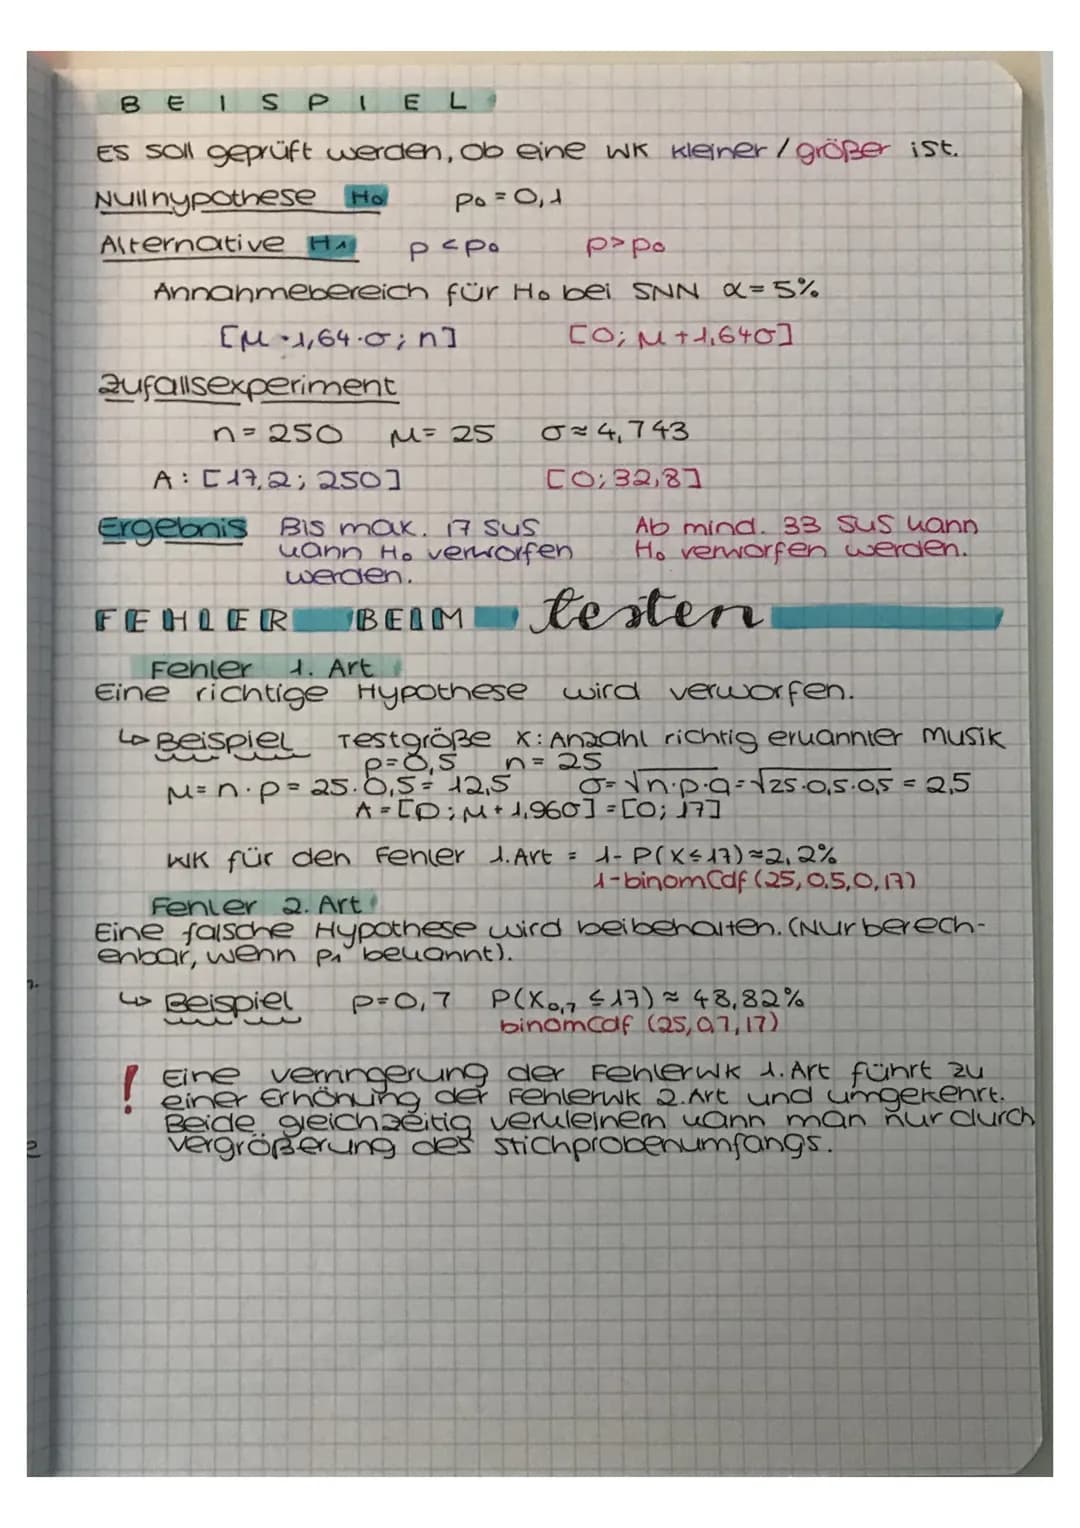 BEISPIEL
Es soll geprüft werden, ob eine WK kleiner / größer ist.
Nullhypothese H₀ p₀ = 0,1
Alternative H₁ p < p₀ p > p₀
Annahmebereich für H₀ bei SNN α = 5%
[μ - 1,64·σ; n] [0; μ + 1,64σ]
Zufallsexperiment
n = 250 μ = 25 σ ≈ 4,743
A: [17,2; 250] [0; 32,8]
Ergebnis Bis max. 17 SuS kann H₀ verworfen werden.
Ab mind. 33 SuS kann H₀ verworfen werden.
FEHLER BEIM testen
Fehler 1. Art
Eine richtige Hypothese wird verworfen.
↳ Beispiel Testgröße X: Anzahl richtig erkannter Musik
p = 0,5 n = 25
μ = n · p = 25 · 0,5 = 12,5 σ = √n·p·q = √25·0,5·0,5 = 2,5
A = [0; μ + 1,96σ] = [0; 17]
WK für den Fehler 1. Art = 1 - P(X ≤ 17) ≈ 2,2%
1-binomCdf (25, 0.5, 0, 17)
Fehler 2. Art
Eine falsche Hypothese wird beibehalten. (Nur berech-
enbar, wenn p₁ bekannt).
↳ Beispiel p = 0,7 P(X₀,₇ ≤ 17) ≈ 48,82%
binomCdf (25, 0.7, 17)
! Eine verringerung der FehlerWK 1. Art führt zu
einer Erhöhung der Fehlerwk 2. Art und umgekehrt.
Beide gleichzeitig verkleinern kann man nur durch
vergrößerung des Stichprobenumfangs.